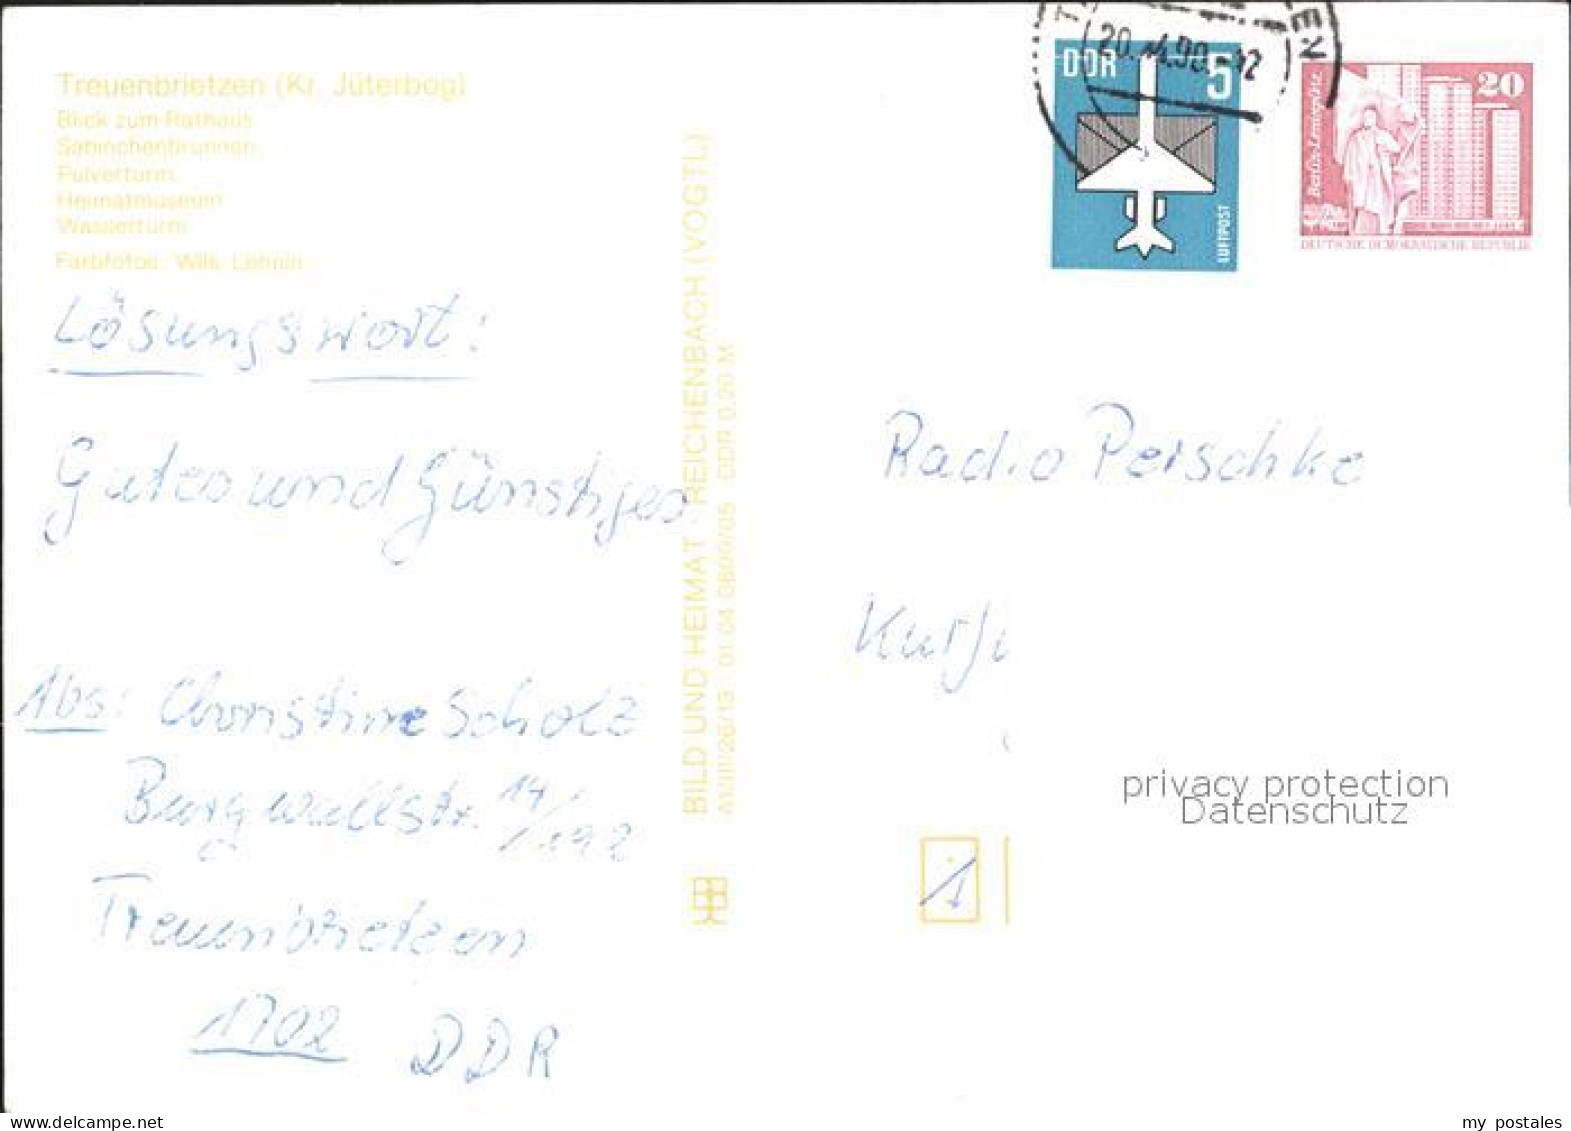 Treuenbrietzen (Kr. Jüterbog)
Blick zum Rathaus
Sabinchenbrunnen
Pulverturm
Heimatmuseum
Wasserturm
Farbfotos: Wils, Lehnin
Lösungswort:
Gutes und Günstiges
Abs: Christine Scholz
Burgwallstr. 14/
Treuenbrietzen
1702 DDR
BILD UND HEIMAT · REICHENBACH (VOGTL)
01 04 0600/05 DDR 0,20 M
EN
20.11.90.-12
DDR 5
LUFTPOST
20
Berlin-Leninplatz
DEUTSCHE DEMOKRATISCHE REPUBLIK
Radio Perschke
Kurfü
privacy protection
Datenschutz
1
my postales